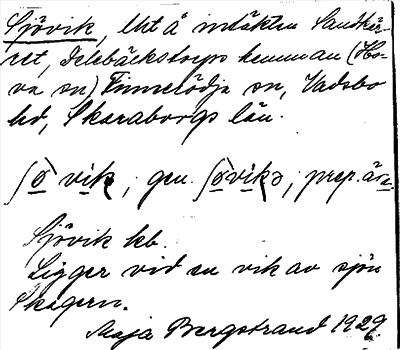 Sjövik, lht å intäkten Sandkär-
ret, Delebäckstorps hemman (Ho-
va sn) Finnerödja sn, Vadsbo
hd, Skaraborgs län.
vik, gen. prep. i
Sjövik kb.
Ligger vid en vik av sjön
Skagern.
Maja Bergstrand 1929.